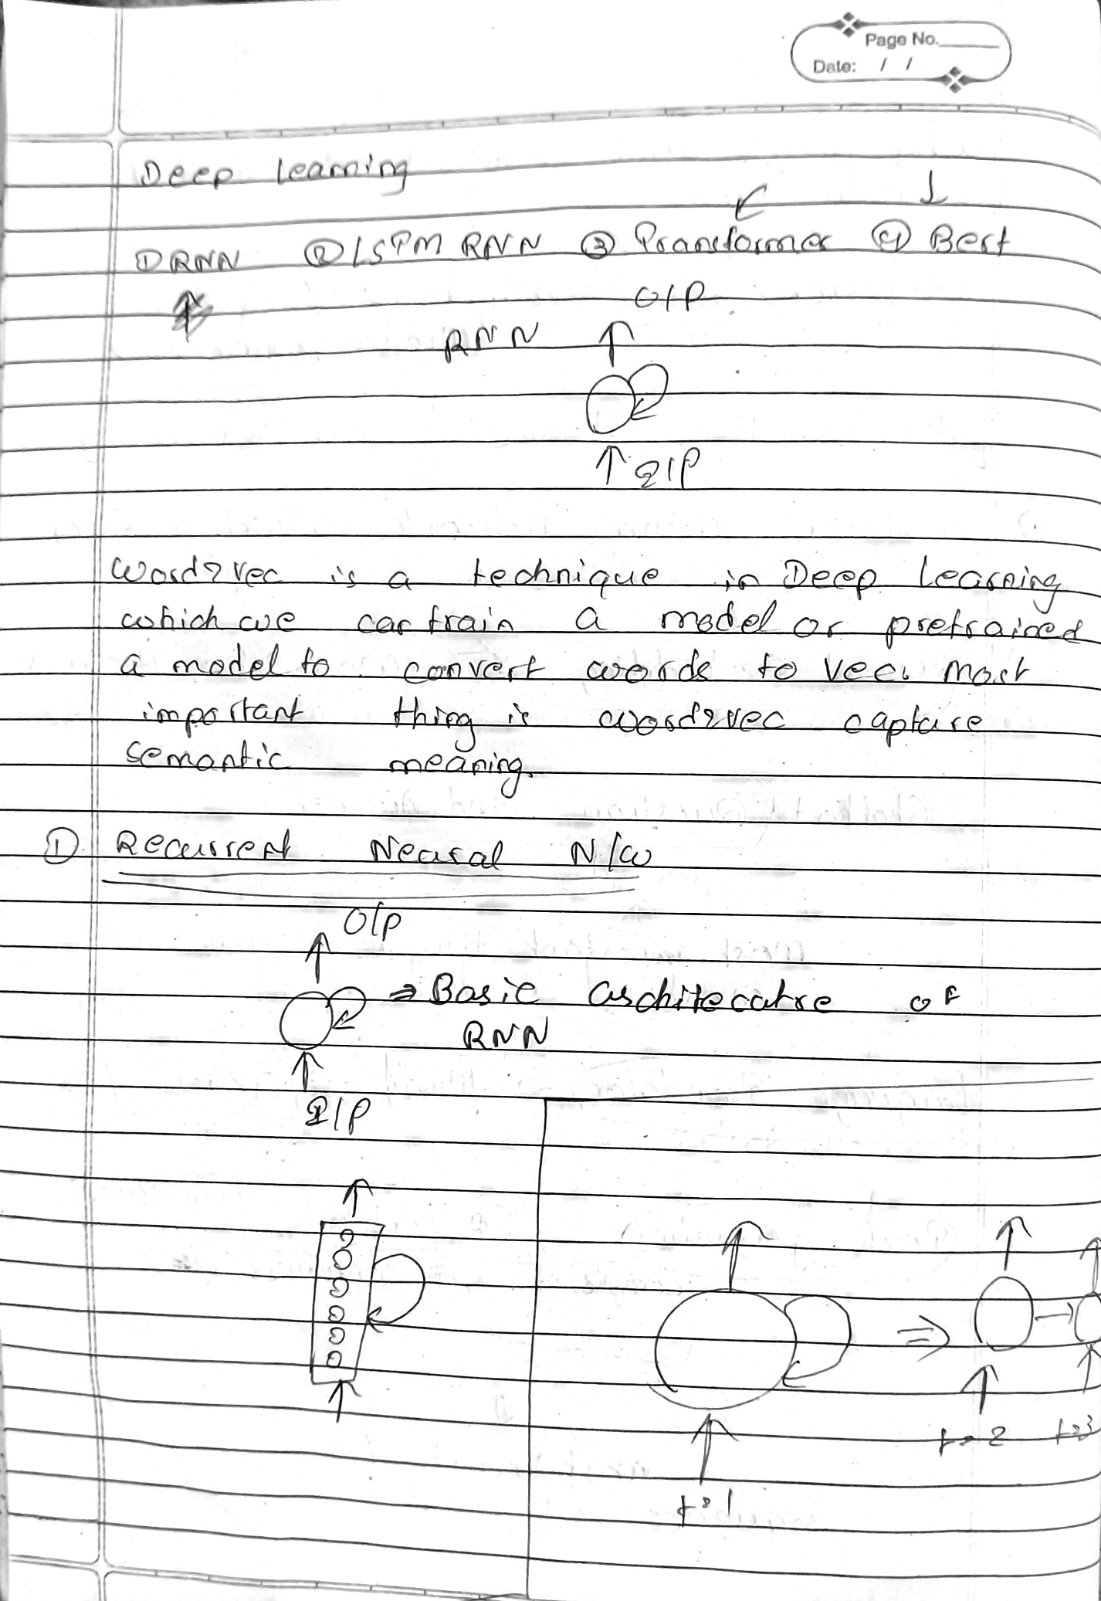 Page No.
Date: / /
Deep Learning
① RNN ② LSTM RNN ③ Transformer ④ Bert
O/P
RNN
I/P
Word2vec is a technique in Deep Learning
which we can train a model or pretrained
a model to convert words to vec. Most
important thing is word2vec capture
semantic meaning.
① Recurrent Neural N/w
O/P
⇒ Basic architecture of
RNN
I/P
⇒
t=2 t=3
t=1